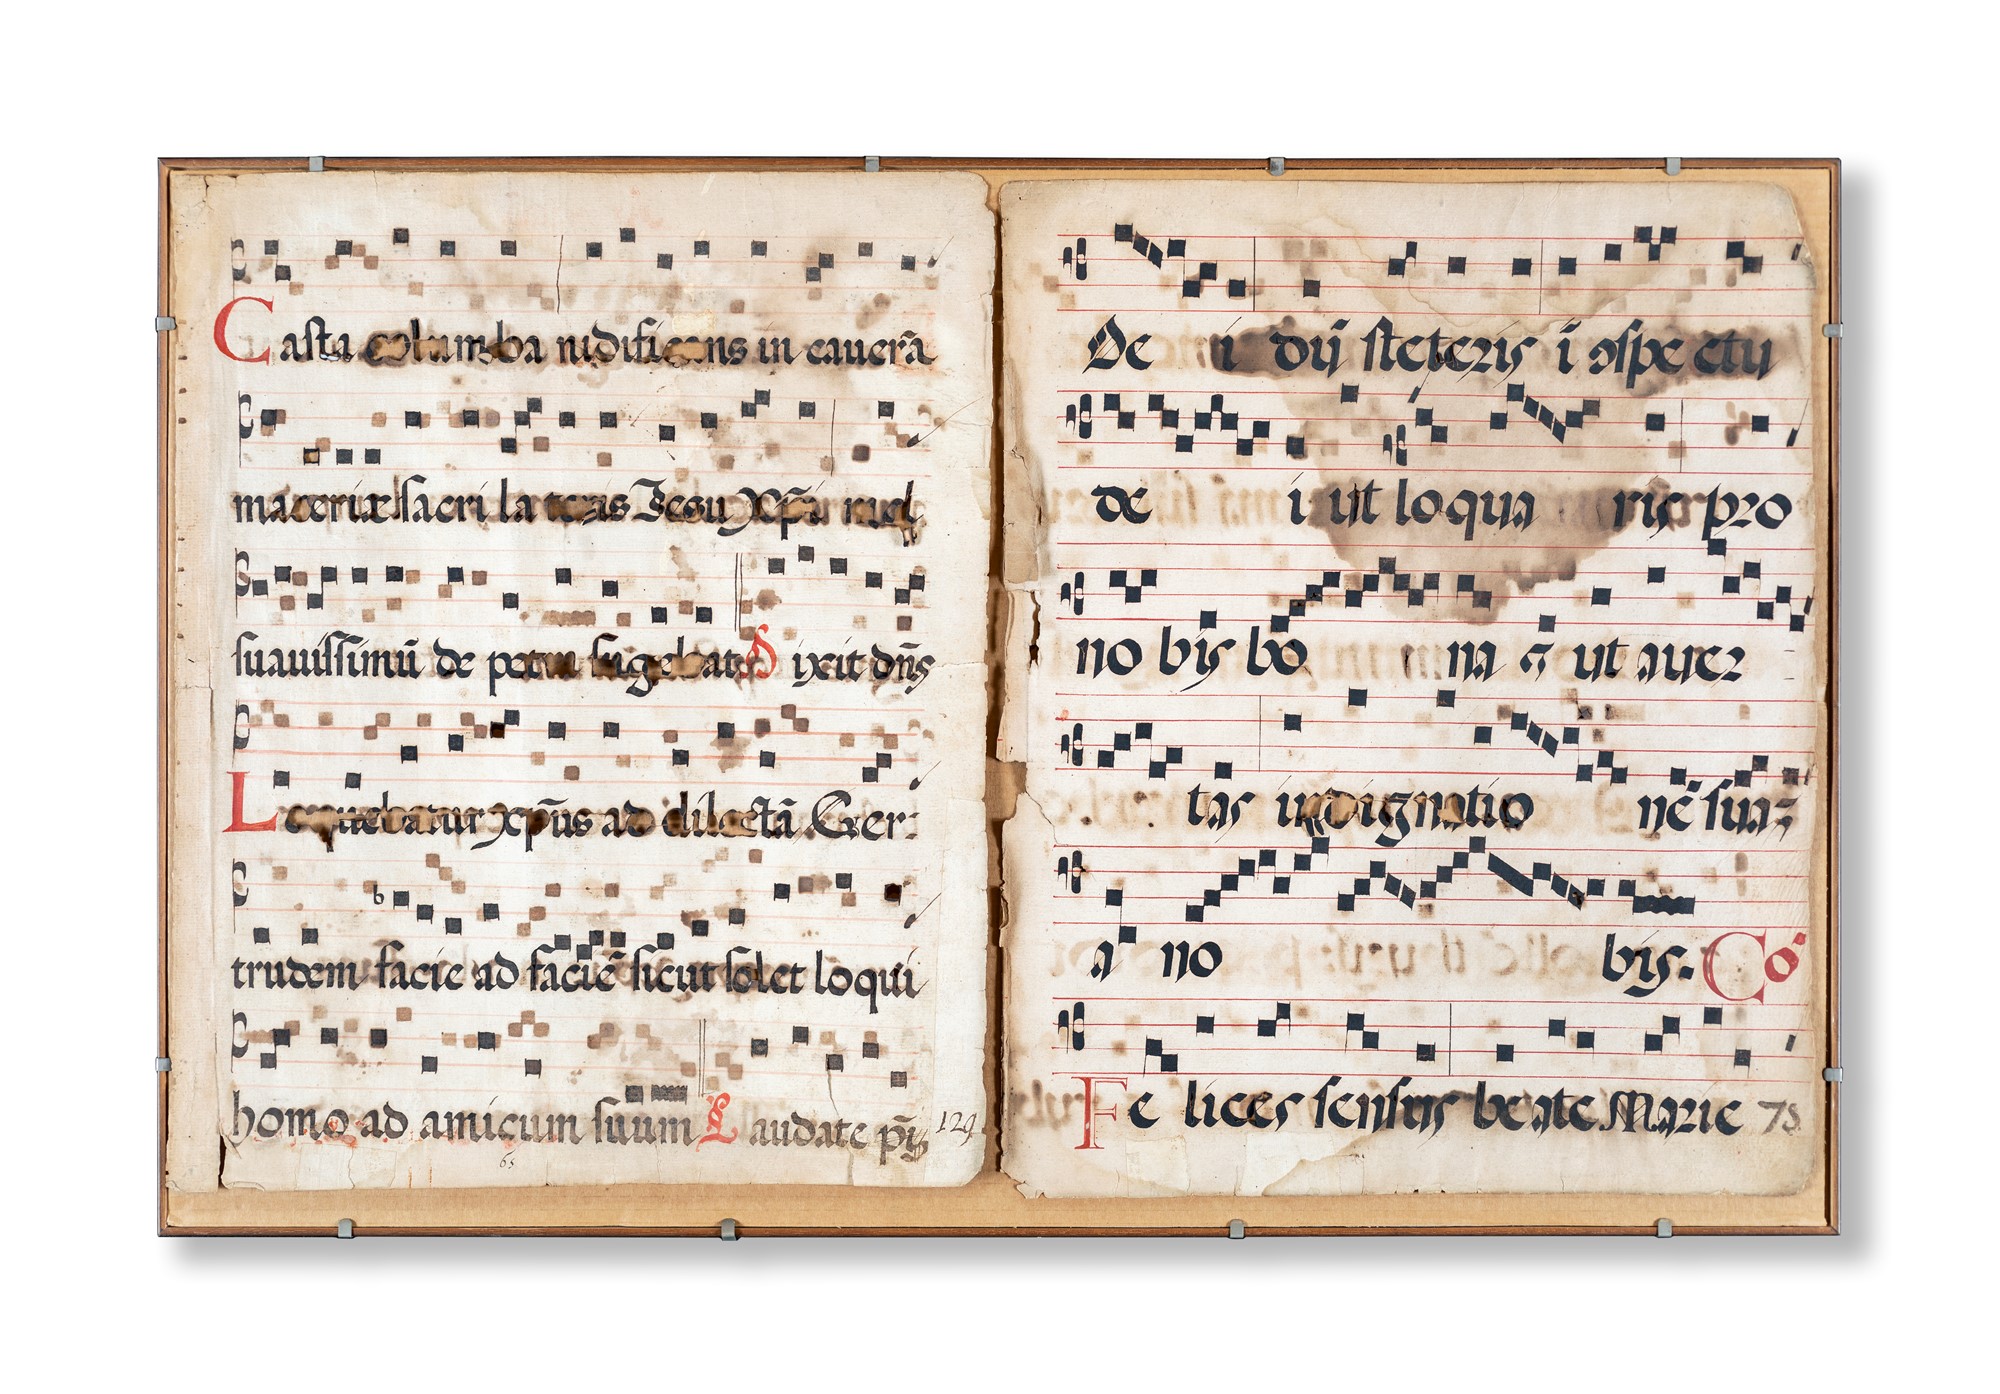 Casta columba nidificans in cauerā
maceriæ sacri lateris Iesu Xp̄i mel
suauissimū de petra sugebat ixit dn̄s
Loquebatur xp̄us ad dilectā Ger:
trudem facie ad faciē sicut solet loqui
homo ad amicum suum Laudate 129
65
De i dū steteris ī ↄspectu
de i ut loqua ris pro
no bis bo na ut auer
tas indignatio nē suā
a no bis. Cō
Fe lices sensus beate Marie 75